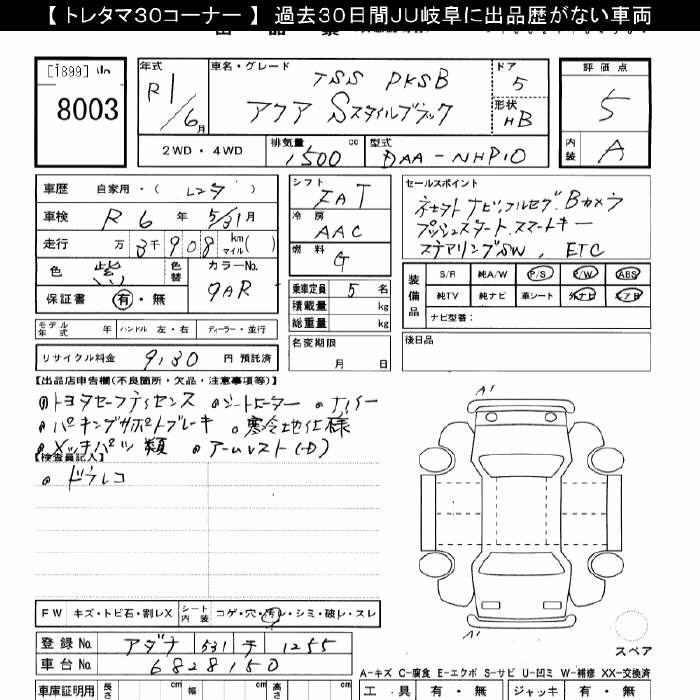 【 トレタマ30コーナー 】 過去30日間JU岐阜に出品歴がない車両
[1899]
8003
年式 R1/6月
車名・グレード TSS PKSB
アクア Sスタイルブラック
ドア 5
形状 HB
2WD・4WD
排気量 1500 cc
型式 DAA-NHP10
評価点 5
内装 A
車歴 自家用・( レンタ )
車検 R6年 5/31月
走行 万 3千908 km マイル( )
色 紫 色替
カラーNo. 9AR
保証書 有・無
モデル年式 年 ハンドル 左・右 ディーラー・並行
リサイクル料金 9,130 円 預託済
シフト FAT
冷房 AAC
燃料 G
乗車定員 5 名
積載量 kg
総重量 kg
名変期限 月 日
セールスポイント
ナビ,フルセグ.Bカメラ
プッシュスタート.スマートキー
ステアリングSW, ETC
装備品
S/R 純A/W P/S P/W ABS
純TV 純ナビ 革シート 外ナビ エアB
ナビ型番:
後日品
【出品店申告欄(不良箇所・欠品・注意事項等)】
トヨタセーフティセンス シートヒーター
パーキングサポートブレーキ 寒冷地仕様
メッキパーツ類 アームレスト(D)
【検査員記入】
ドラレコ
A1
A1
FW キズ・トビ石・割レX シート内装 コゲ・穴・汚レ・シミ・破レ・スレ
登録No. アダチ 531 テ 1255
車台No. 6828150
スペア
A-キズ C-腐食 E-エクボ S-サビ U-凹ミ W-補修 XX-交換済
車庫証明用 長さ cm 幅 cm 高さ cm
工具 有・無 ジャッキ 有・無